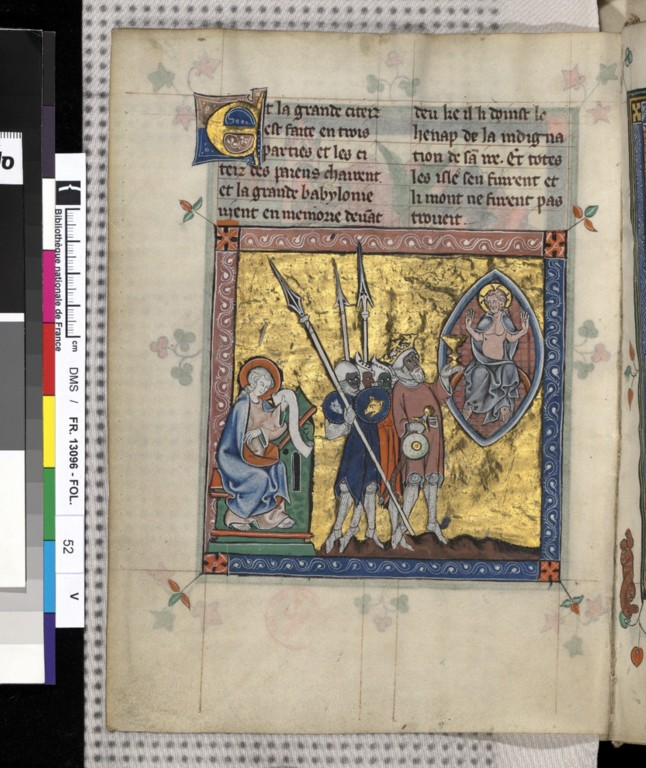 Et la grande citeiz
est faite en trois
parties et les ci
teiz des paiens chairent
et la grande babylonie
uient en memoire deuāt
deu ke il li doinst le
henap de la indigna
tion de sa ire. Et totes
les isle sen fuirent et
li mont ne furent pas
troueit.
cm
Bibliothèque nationale de France
DMS / FR. 13096 - FOL. 52 V